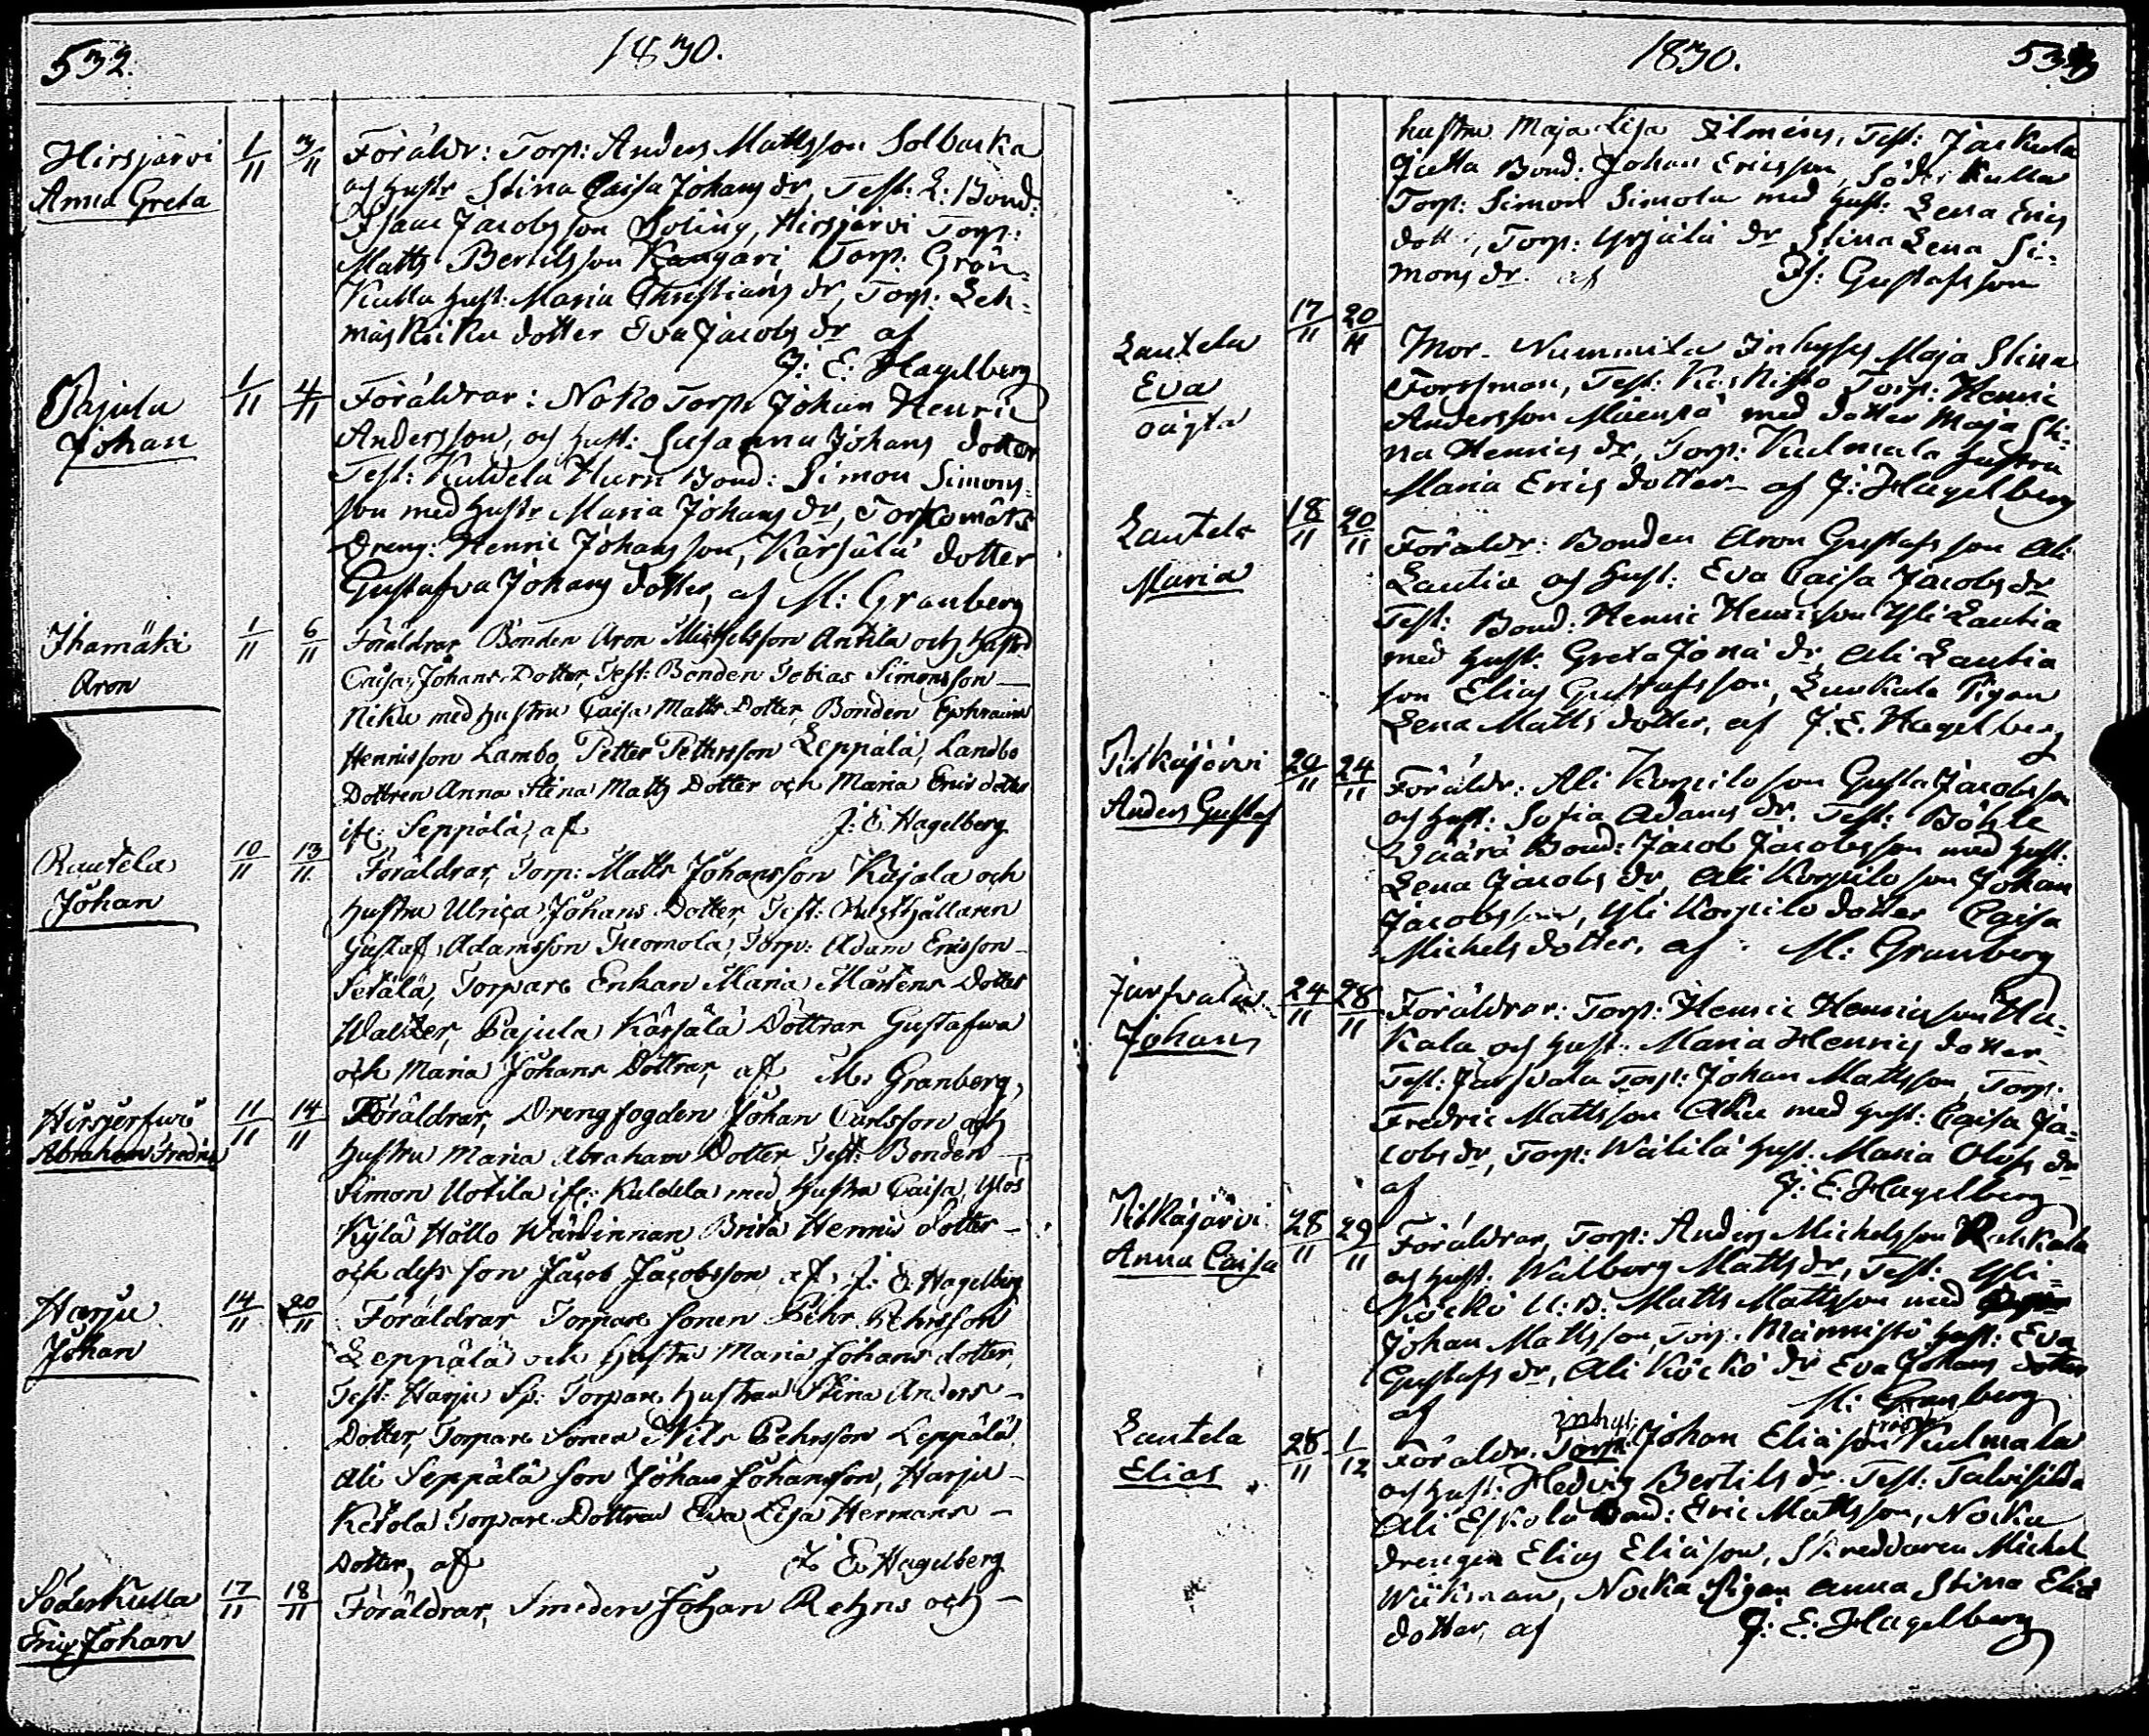 532.
1830.
Hirsjärvi
Anna Greta
1/11 3/11
Föräldr: Torp: Anders Mattsson Solbacka
och hustr Stina Caisa Johans dr, Test: L: Bond:
Isaac Jacobsson Soling, Hirsjärvi Torp:
Matts Bertilsson Kangari, Torp: Grön-
Kulla hust: Maria Christians dr, Torp: Leh-
mäs dotter Eva Jacobs dr af
J: E: Hagelberg
Pajula
Johan
1/11 4/11
Föräldrar: Noko Torp: Johan Henric
Andersson, och hust: Susanna Johans dotter
Test: Kuldela Bond: Simon Simons-
son med hustr Maria Johans dr,
Dreng: Henric Johansson, Kärsälä dotter
Gustafva Johans dotter, af M: Granberg
Ihamäki
Aron
1/11 6/11
Föräldrar Bonden Aron Michelsson Antila och hustru
Caisa Johans Dotter, Test: Bonden Tobias Simonsson –
Niku med hustru Caisa Matts Dotter, Bonden Ephraim
Henricsson Lambo, Petter Pettersson Leppälä, Landbo
Dottren Anna Stina Matts Dotter och Maria Erics dotter
if: Seppälä, af J: E. Hagelberg
Rautela
Johan
10/11 13/11
Föräldrar, Torp: Matts Johansson Kujala och
hustru Ulrica Johans Dotter, Test:
Gustaf Adamsson Tuomola, Torp: Adam Ericsson –
Setälä, Torpare Enkan Maria Mårtens Dotter
Walter, Pajula Kärsälä Döttrar Gustafwa
och Maria Johans Döttrar, af M. Granberg,
Hirsjerfwi
Abraham Fredric
11/11 14/11
Föräldrar, Drengfogden Johan Carlsson och
hustru Maria Abraham Dotter, Test: Bonden –
Simon Uotila if: Kuldela med hustru Caisa, Ylös
Kylä Hollo Wärdinnan Brita Henrics dotter –
och dess son Jacob Jacobsson, af, J: E: Hagelberg
Harju
Johan
14/11 20/11
Föräldrar Torpare sonen Pehr Pehrsson
Leppälä och hustru Maria Johans dotter,
Test: Harju Sp: Torpare hustrun Stina Anders –
Dotter, Torpare Sonen Nils Pehrsson Leppälä,
Ali Seppälä son Johan Johansson, Harju –
Ketola Torpare Dottren Eva Lisa Hermans –
Dotter, af J. E. Hagelberg
Söderkulla
Eric Johan
17/11 18/11
Föräldrar, Smeden Johan Rehns och –
1830.
533
hustru Maja Lisa Ilmèns, Test:
Jutta Bond: Johan Ericsson, Söderkulla
Torp: Simon Simola med hust: Lena Erics
dott:, Torp: Yrjälä dr Stina Lena Si-
mons dr. af Is: Gustafsson
Lautela
Eva
oägta
17/11 20/11
Mor – Nummila Inhyses Maja Stina
Forssman, Test: Koskisto Torp: Henric
Andersson Mäenpä med dotter Maja Sti-
na Henrics dr, Torp: Kulmala hustru
Maria Erics dotter – af J: Hagelberg
Lautela
Maria
18/11 20/11
Föräldr: Bonden Aron Gustafsson Ali
Lautia och hust: Eva Caisa Jacobs dr
Test: Bond: Henric Henricsson Yli Lautia
med hust: Greta Jona dr, Ali Lautia
son Elias Gustafsson, Luukala Pigan
Lena Matts dotter, af J. E. Hagelberg
Pitkäjärvi
Anders Gustaf
20/11 24/11
Föräldr: Ali Korpilo son Gusta Jacobsson
och hust: Sofia Adams dr. Test: Böhle
Waära Bond: Jacob Jacobsson med hust:
Lena Jacobs dr, Ali Korpilo son Johan
Jacobsson, Yli Korpilo dotter Caisa
Michels dotter, af M: Granberg
Johan
24/11 28/11
Föräldrar: Torp: Henric Henricsson Ha-
kala och hust: Maria Henrics dotter –
Test: Torp: Johan Mattsson, Torp:
Fredric Mattsson Aku med hust: Caisa Ja-
cobs dr, Torp: Wälilä hust: Maria Olofs dr
af J: E: Hagelberg
Pitkäjärvi
Anna Caisa
28/11 29/11
Föräldrar, Torp: Anders Michelsson Rahkala
och hust: Walborg Matts dr, Test: Yli-
Köckö U: B: Matts Mattsson med
Johan Mattsson, Torp: Männistö hust: Eva
Gustafs dr, Ali Köckö dr Eva Johans dotter
af M: Granberg
Lautela
Elias
28/11 1/12
inhys:
Föräldr: Torp: Johan Eliasson Kulmala
och hust: Hedvig Bertils dr. Test: Talvisilda
Ali Eskola Bond: Eric Mattsson, Nocka
drengen Elias Eliasson, Skreddaren Michel
Wickman, Nocka Pigan Anna Stina Elias
dotter, af J: E: Hagelberg